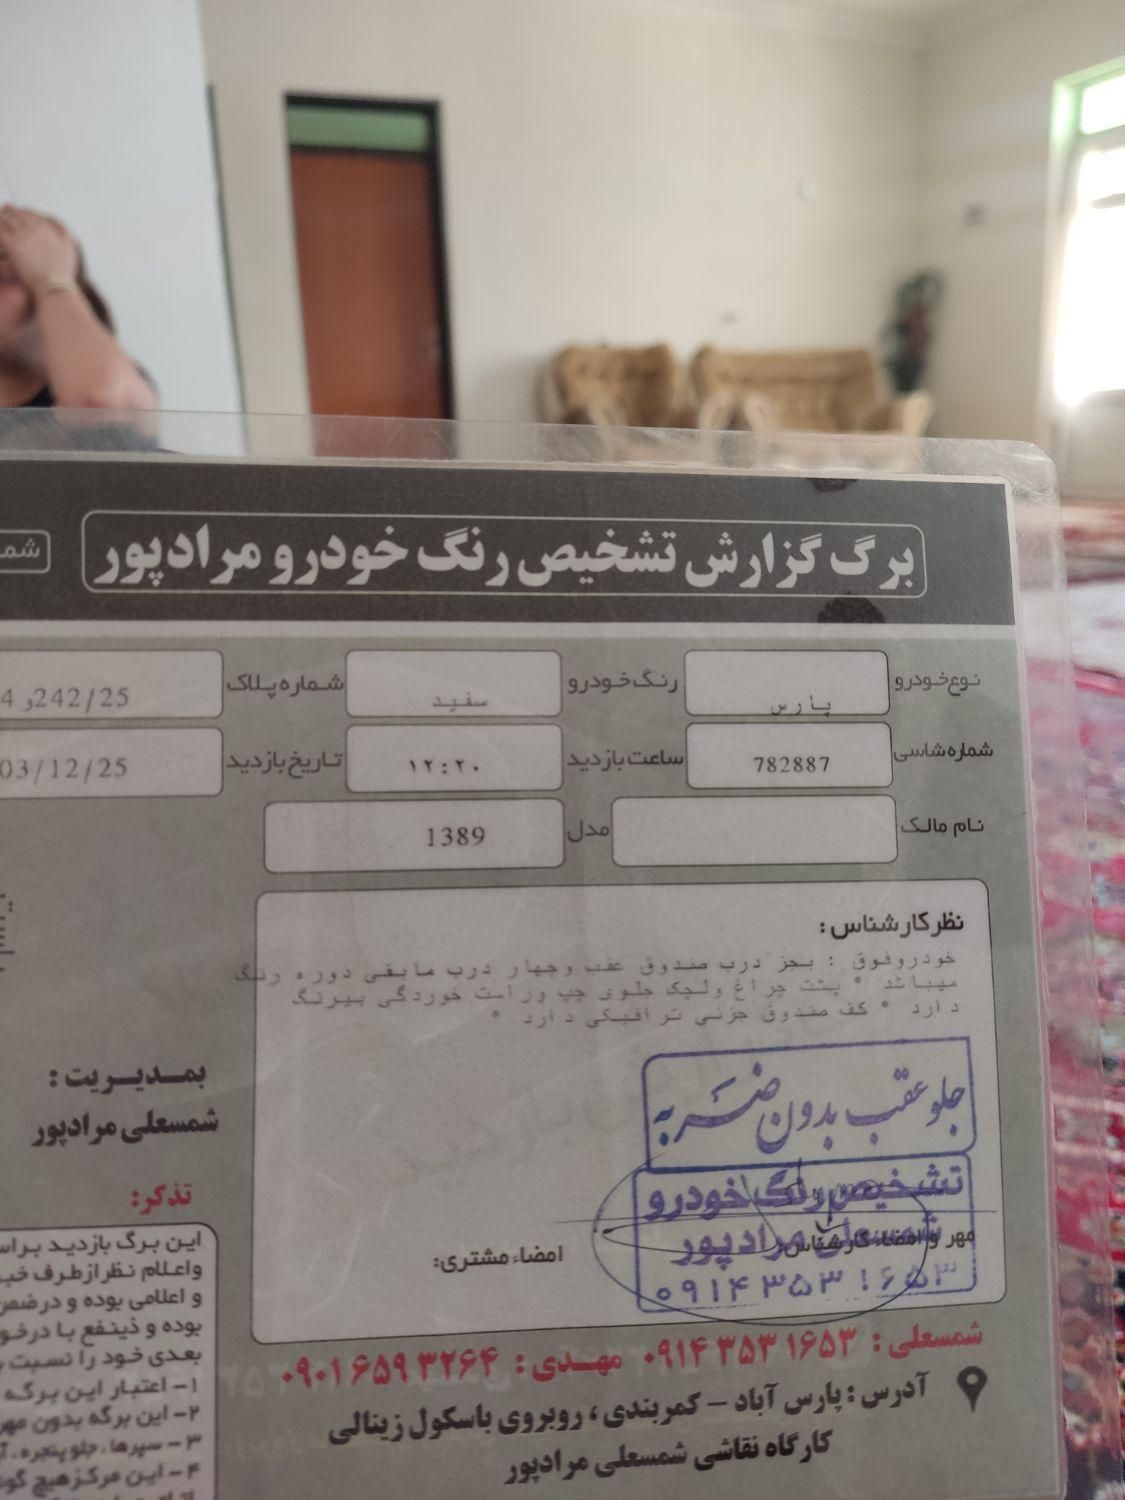 برگ گزارش تشخیص رنگ خودرو مرادپور
نوع خودرو پارس رنگ خودرو سفید شماره پلاک 242/25و 4
شماره شاسی 782887 ساعت بازدید ۱۲:۲۰ تاریخ بازدید 03/12/25
نام مالک مدل 1389
نظر کارشناس :
خودرو فوق : بجز درب صندوق عقب وچهار درب مابقی دوره رنگ
میباشد * پشت چراغ ولچک جلوی چپ وراست خوردگی بیرنگ
دارد * کف صندوق جزئی ترافیکی دارد *
جلو عقب بدون ضربه
تشخیص رنگ خودرو
شمسعلی مرادپور
۰۹۱۴ ۳۵۳ ۱۶۵۳
مهر و امضاء کارشناس:
امضاء مشتری:
بمدیریت :
شمسعلی مرادپور
تذکر:
این برگ بازدید
واعلام نظر از طرف
و اعلامی بوده و
بوده و ذینفع با
بعدی خود را نسبت
۱- اعتبار این برگه
۲- این برگه بدون مهر
۳- سپرها، جلو پنجره،
۴- این مرکز هیچ
شمسعلی : ۰۹۱۴ ۳۵۳ ۱۶۵۳ مهدی : ۰۹۰۱ ۶۵۹ ۳۲۶۴
آدرس : پارس آباد - کمربندی ، روبروی باسکول زینالی
کارگاه نقاشی شمسعلی مرادپور